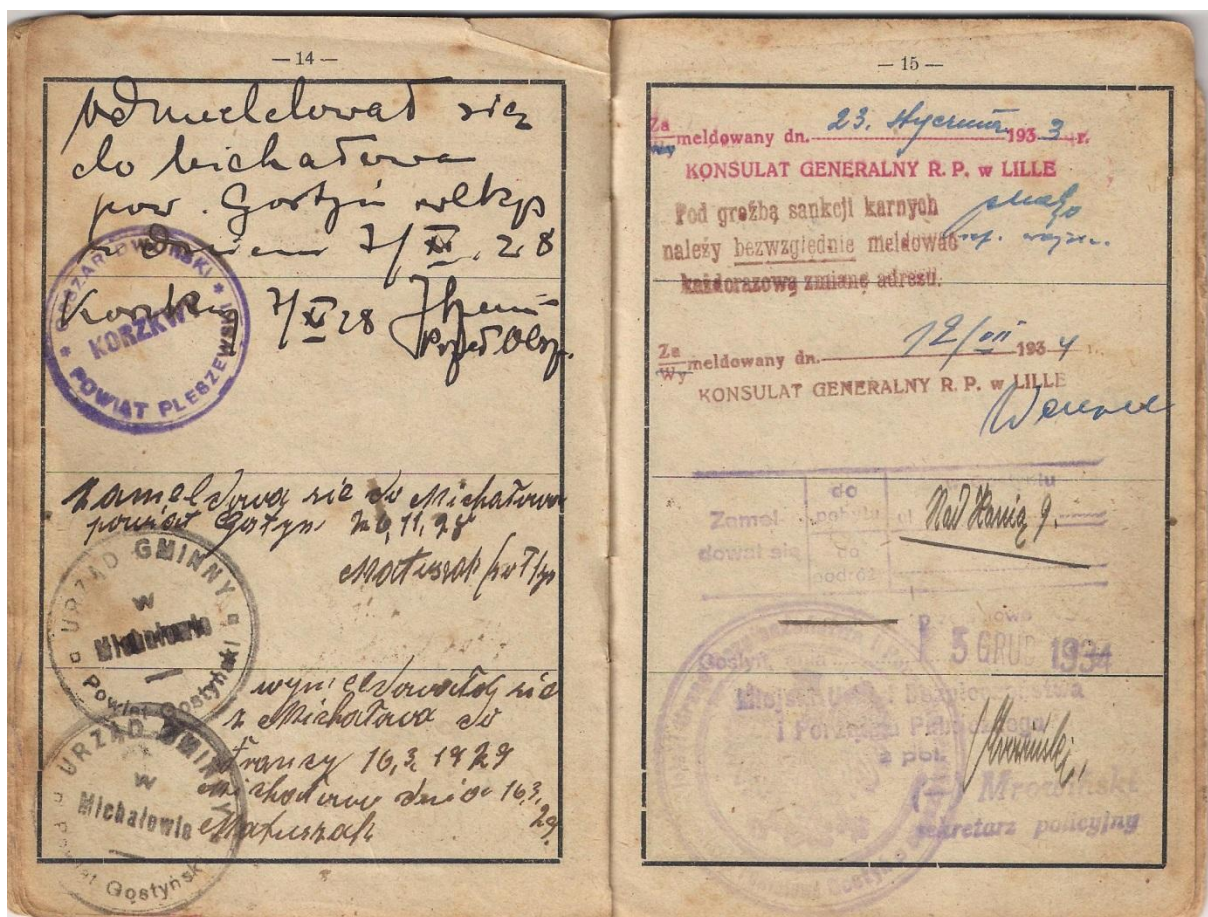 — 14 —
odmeldował się
do Michałowa
pow. Gostyń wlkp
z dniem 7/XI. 28
Korzkwy 7/XI 28
OBSZAR DWORSKI
KORZKWY
POWIAT PLESZEWSKI
zameldowa sie do Michałowa
powiat Gostyn 20,11,28
Matuszak sołtys
URZĄD GMINNY
w
Michałowie
Powiat Gostyński
wymeldowałdy sie
z Michałowa do
Francy 16,3, 1929
Michałowo dnia 16,3,
29.
Matuszak
URZĄD GMINNY
w
Michałowie
Powiat Gostyński
— 15 —
Za
Wy
meldowany dn. 23. Stycznia 1933 r.
KONSULAT GENERALNY R. P. w LILLE
Pod groźbą sankcji karnych
należy bezwzględnie meldować
każdorazową zmianę adresu.
Za
Wy
meldowany dn. 12/VII 1934 r.
KONSULAT GENERALNY R. P. w LILLE
Zamel-
dował się
do
pobytu
do
podróż
ul. Nad Kanią 9.
Gostyń, dnia
15 GRUD 1934
Miejski Urząd Bezpieczeństwa
i Porządku Publicznego
z pol.
(—) Mroziński
sekretarz policyjny